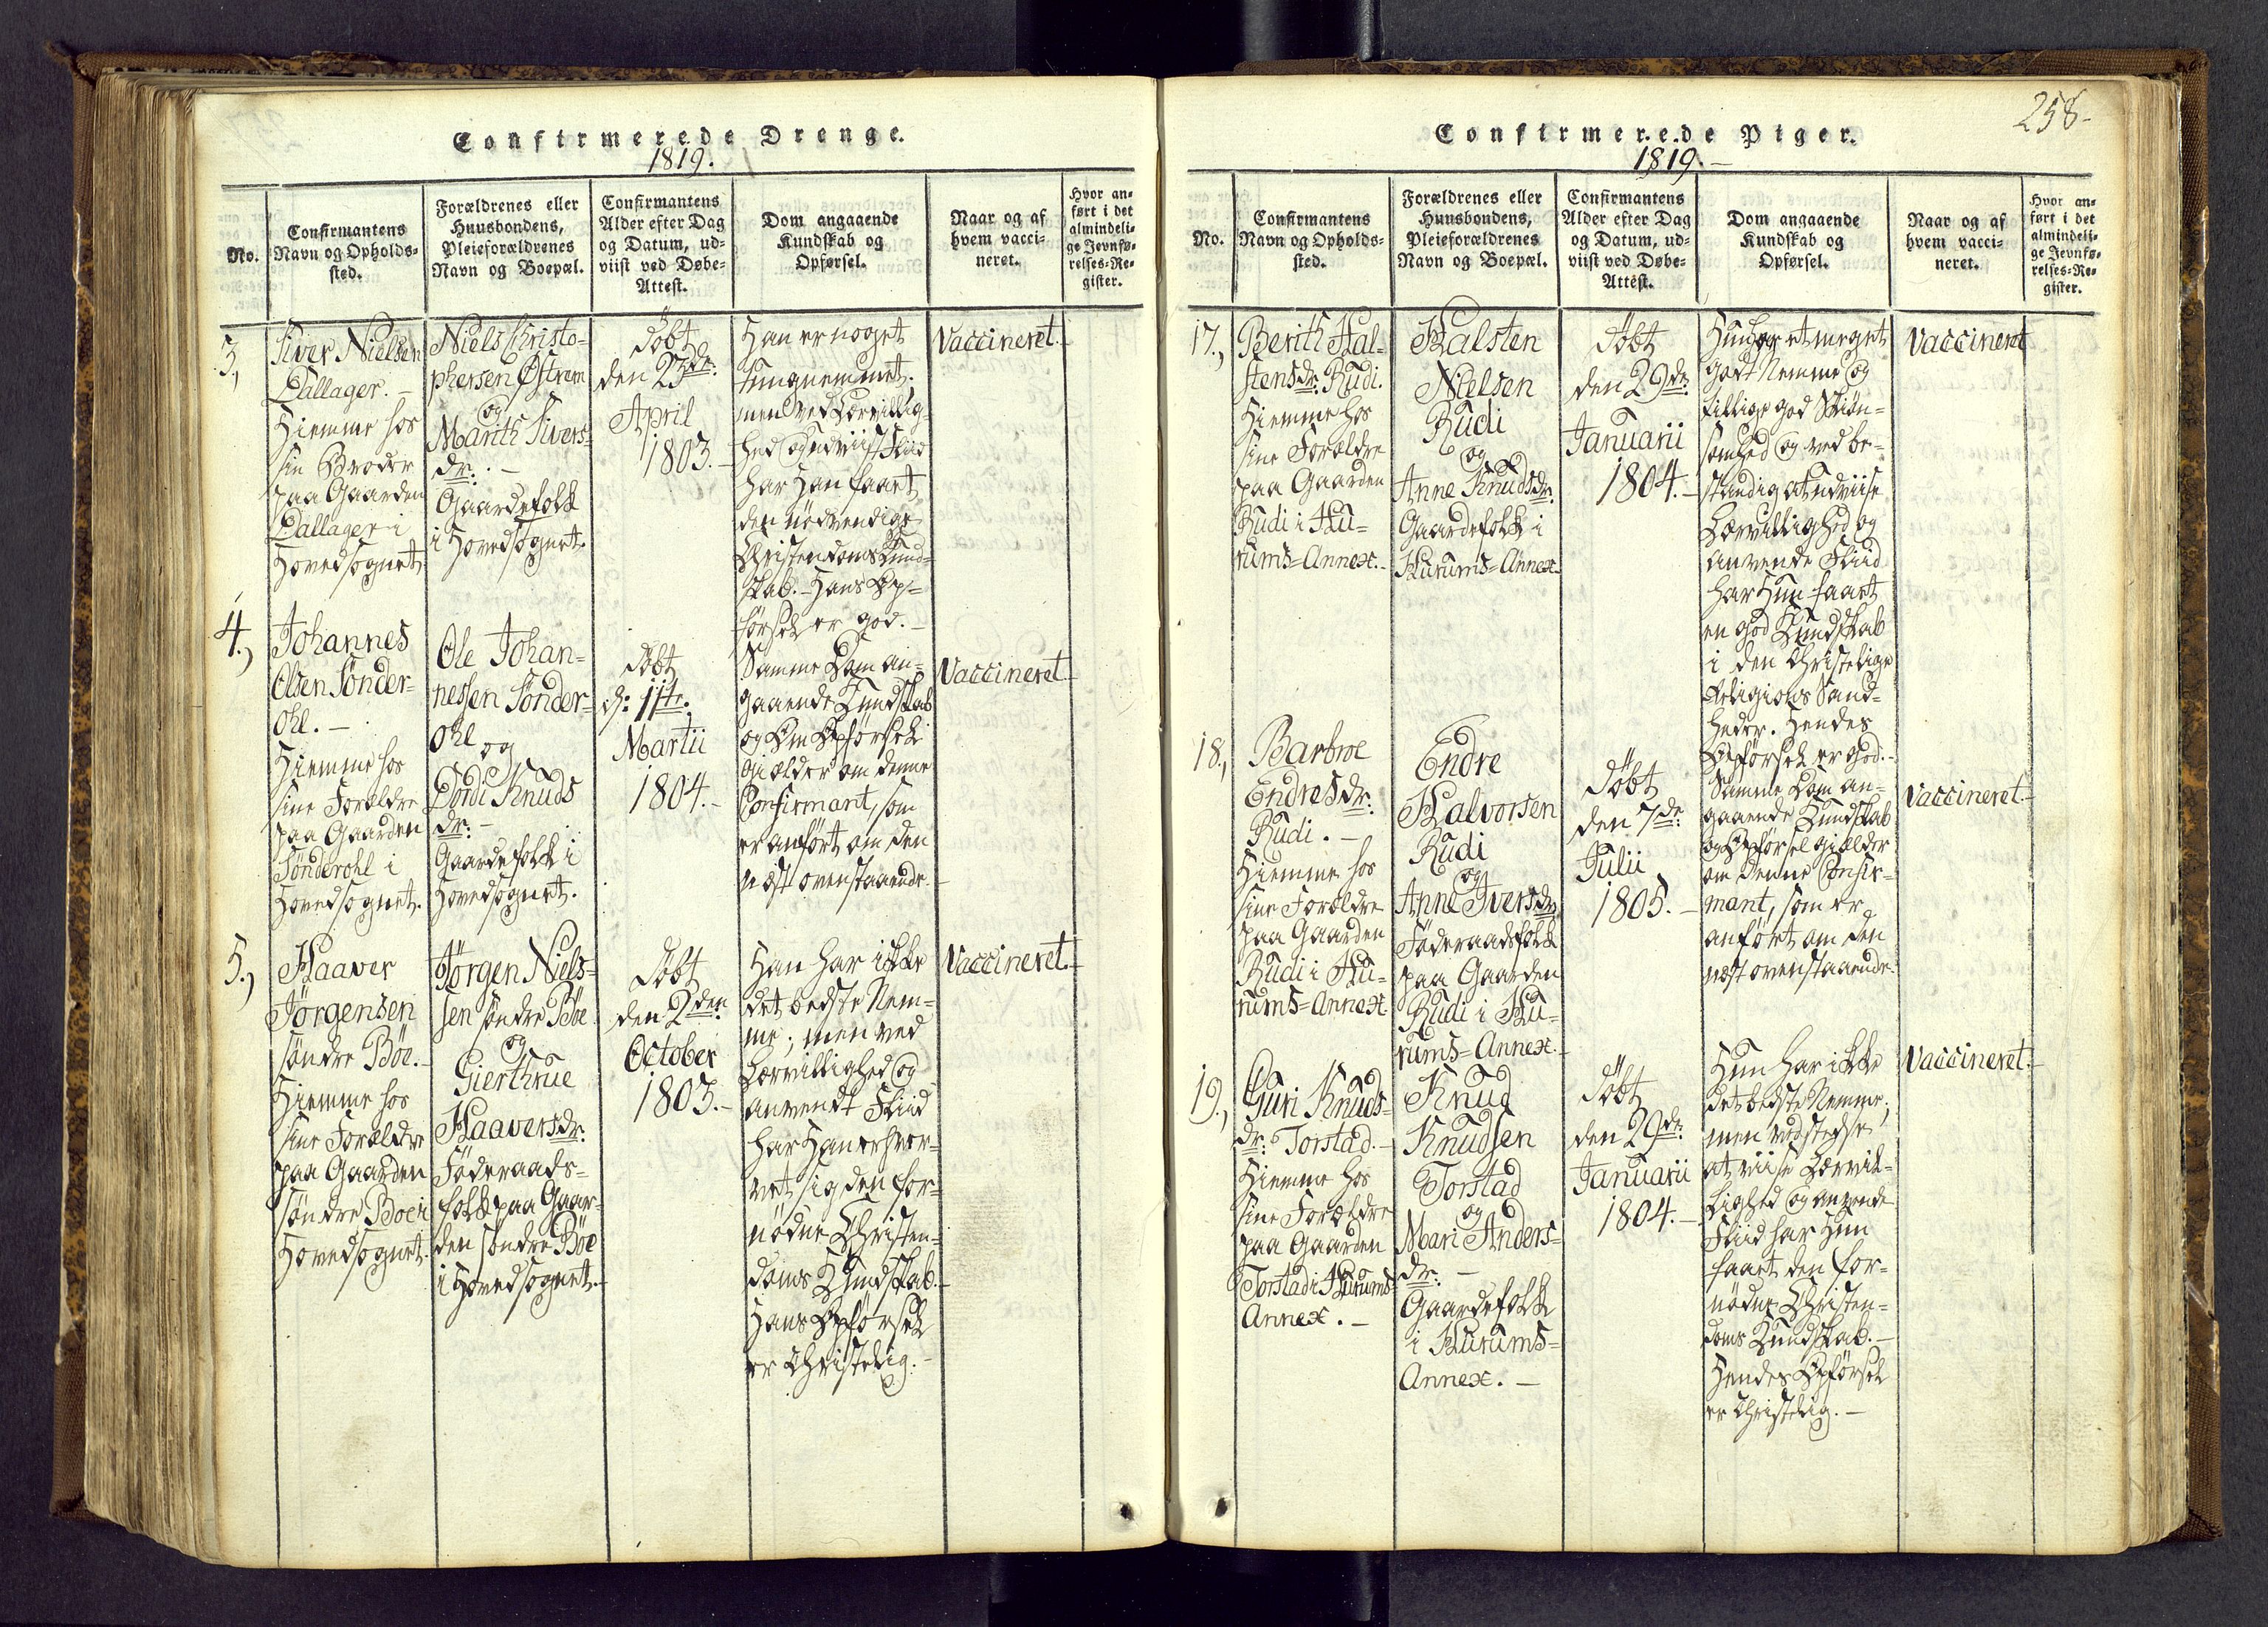 Confirmerede Drenge.
1819.
No.
Confirmantens
Navn og Opholds-
sted.
Forældrenes eller
Huusbondens,
Pleieforældrenes
Navn og Boepæl.
Confirmantens
Alder efter Dag
og Datum, ud-
viist ved Døbe-
Attest.
Dom angaaende
Kundskab og
Opførsel.
Naar og af
hvem vacci-
neret.
Hvor an-
ført i det
almindeli-
ge Jevnfø-
relses-Re-
gister.
3.,
Siver Nielsen
Dallager. -
Hiemme hos
sin Broder
paa Gaarden
Dallager i
Hovedsognet
Niels Christo-
phersen Østrem
og
Marith Sivers-
dr. -
Gaardefolk
i Hovedsognet.
Döbt
den 23de
April
1803. -
Han er noget
tungnemmet.
men ved Lærvillig-
hed og udviist Fliid
har Han faaet
den nödvendige
Christendoms Kund-
skab. - Hans Op-
försel er god. -
Vaccineret. -
4.,
Johannes
Olsen Sönder-
ohl. -
Hiemme hos
sine Forældre
paa Gaarden
Sönderohl i
Hovedsognet.
Ole Johan-
nessen Sönder-
ohl og
Dordi Knuds
dr. -
Gaardefolk i
Hovedsognet.
Döbt
d: 11te.
Martii
1804. -
Samme Dom an-
gaaende Kundskab
og Om Opförsel
gielder om denne
Confirmant, som
er anfört om den
næst ovenstaaende. -
Vaccineret. -
5.,
Haaver
Jörgensen
söndre Böe. -
Hiemme hos
sine Forældre
paa Gaarden
söndre Böe i
Hovedsognet.
Jörgen Niels-
sen söndre Böe
og
Gierthrue
Haaversdr.
Föderaads-
folk paa Gaar-
den söndre Böe
i Hovedsognet. -
Döbt
den 2den
October
1803. -
Han har ikke
det bedste Nem-
me; men ved
Lærvillighed og
anvendt Fliid
har Han erhver-
vet sig den for-
nödne Christen-
doms Kundskab. -
Hans Opförsel
er Christelig. -
Vaccineret. -
258-
Confirmerede Piger.
1819. -
No.
Confirmantens
Navn og Opholds-
sted.
Forældrenes eller
Huusbondens,
Pleieforældrenes
Navn og Boepæl.
Confirmantens
Alder efter Dag
og Datum, ud-
viist ved Døbe-
Attest.
Dom angaaende
Kundskab og
Opførsel.
Naar og af
hvem vacci-
neret.
Hvor an-
ført i det
almindeli-
ge Jevnfø-
relses-Re-
gister.
17.,
Berith Hal-
stensdr. Rudi.
Hiemme hos
sine Forældre
paa Gaarden
Rudi i Hu-
rums-Annex. -
Halsten
Nielsen
Rudi
og
Anne Knudsdr.
Gaardefolk i
Hurums-Annex. -
Döbt
den 29de
Januarii
1804. -
Hun har et meget
godt Nemme og
tillige god Skiön-
somhed og ved be-
standig at udviise
Lærvillighed og
anvende Fliid
har Hun faaet
en god Kundskab
i den Christelige
Religions Sand-
heder. Hendes
Opförsel er god. -
Vaccineret
18.,
Barbroe
Endresdr.
Rudi. -
Hiemme hos
sine Forældre
paa Gaarden
Rudi i Hu-
rums-Annex
Endre
Halvorsen
Rudi
og
Anne Iversdr.
Föderaadsfolk
paa Gaarden
Rudi i Hu-
rums-Annex. -
Döbt
den 7de
Julii
1805. -
Samme Dom an-
gaaende Kundskab
og Opförsel gielder
om denne Confir-
mant, som er
anfört om den
næst ovenstaaende.
Vaccineret. -
19.,
Guri Knuds-
dr: Torstad. -
Hiemme hos
sine Forældre
paa Gaarden
Torstad i Hurums-
Annex. -
Knud
Knudsen
Torstad
og
Mari Anders-
dr. -
Gaardefolk
i Hurums-
Annex. -
Döbt
den 29de
Januarii
1804. -
Hun har ikke
det bedste Nemme;
men ved stedse
at viise Lærvil-
lighed og anvende
Fliid har Hun
faaet den for-
nödne Christen-
doms Kundskab. -
Hendes Opförsel
er Christelig. -
Vaccineret. -